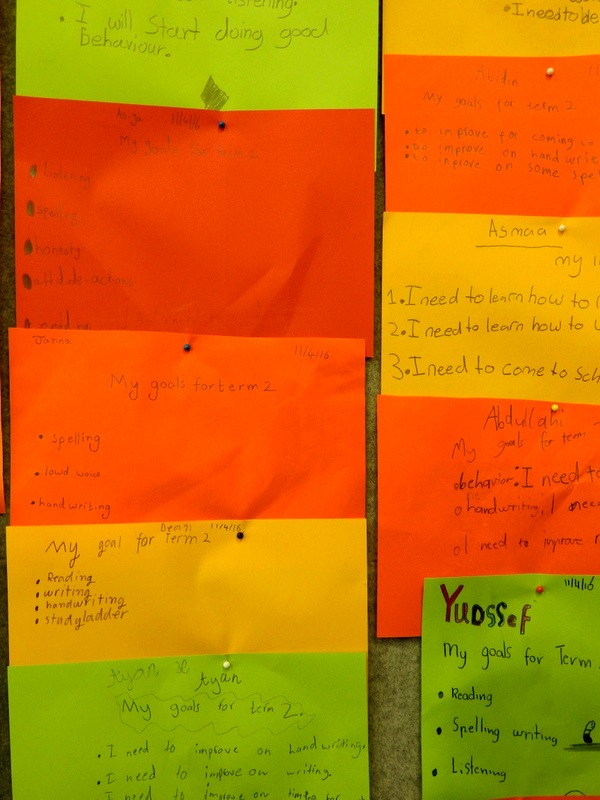 listening.
• I will start doing good
Behaviour.
11/4/16
My goals for term 2
listening
spelling
honesty
attitude-actions
Janna
11/4/16
My goals for term 2
• spelling
• lowd
• handwriting
11/4/16
My goal for Term 2
• Reading
• writing
• handwriting
• studyladder
My goals for term 2.
• I need to improve on handwriting.
• I need to improve on writing.
• I need to improve on
• I need to be
Abidin
My goals for term 2
• to improve for coming to
• to improve on hand
• to inprove on some
Asmaa
my
1. I need to learn how to
2. I need to learn how to
3. I need to come to
Abdullahi
My goals for term
behavior: I need to
handwriting, I need
I need to improve
11/4/16
Yuossef
My goals for Term
• Reading
• Spelling writing
• Listening